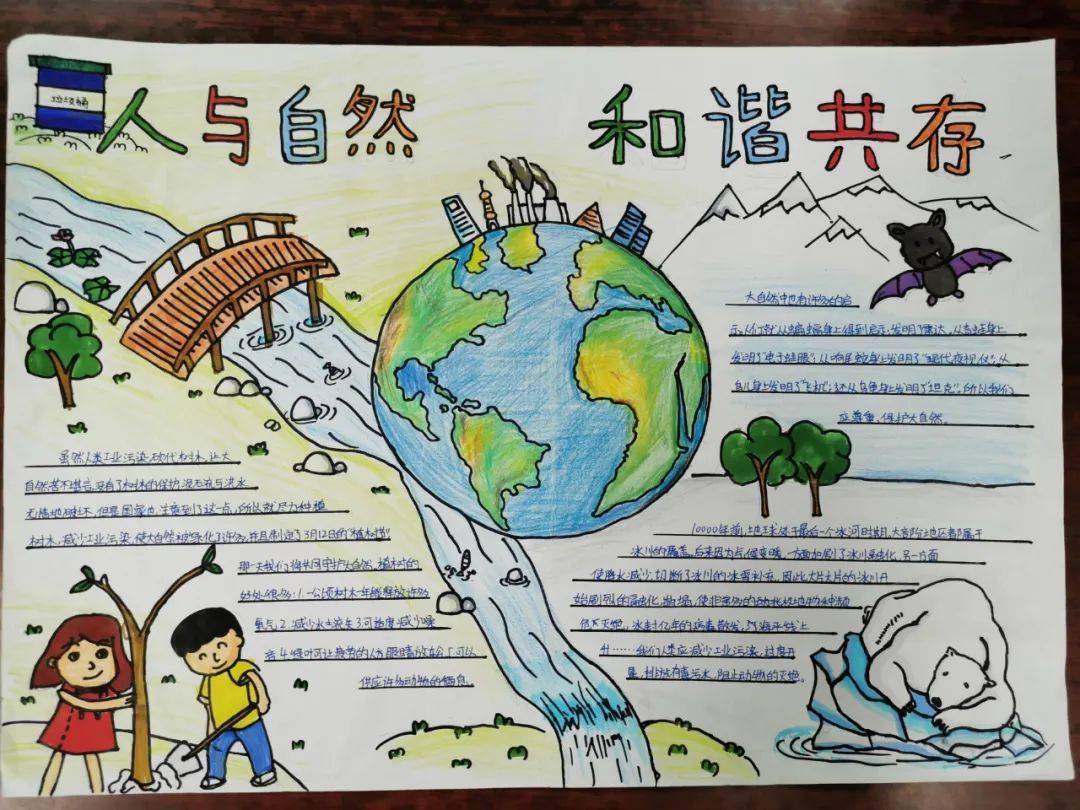 垃圾桶
人与自然 和谐共存
大自然中也有许多的启
示,人们就从蝙蝠身上得到启示,发明了雷达,从青蛙身上
发明了"电子蛙眼";从响尾蛇身上发明了"现代夜视仪";从
鸟儿身上发明了"飞机";还从乌龟身上发明了"坦克"。所以我们
应尊重、保护大自然。
虽然人类工业污染,砍伐树木,让大
自然苦不堪言,没有了树林的保护,泥石流与洪水
无情地破坏,但是国家也 到了这一点,所以就尽力种植
树木,减少工业污染,使大自然被绿化了许多,并且制造了3月12日的"植树节"
那一天我们将共同守护大自然,植树的
好处很多:1.一公顷树木一年能释放许多
氧气 2.减少水土流失 3.可适度减少噪
音 4.绿叶可让疲劳的人们眼睛放松 5.可以
供应许多动物的栖息
10000年前,地球还于最后一个冰河时期,大部分地区都属于
冰川的覆盖,后来因为气候变暖,一方面加剧了冰川融化,另一方面
使降水减少,切断了冰川的冰雪补充,因此大片大片的冰川开
始剧烈的融化、崩塌,使非常多的 北极地物种频
灭绝,冰封亿年的病毒散发,河海平线上
升……我们人类应减少工业污染,过度开
垦,排放有毒污水,阻止动物的灭绝。